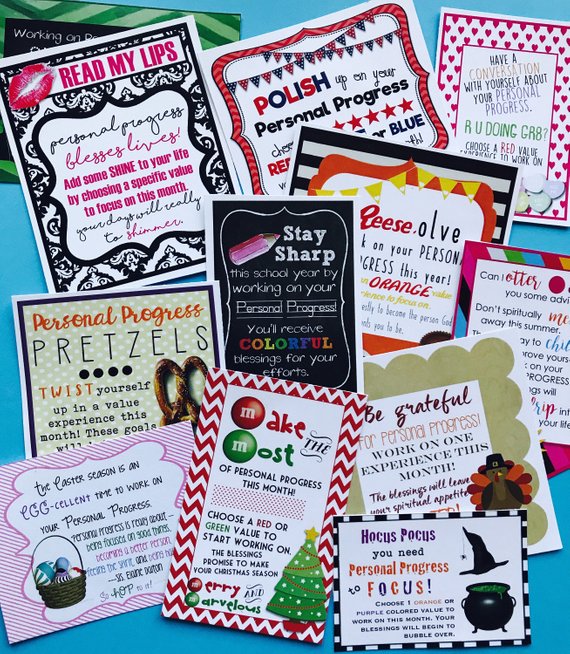 Working on Pe
READ MY LIPS
personal progress
blesses lives!
Add some SHINE to your life
by choosing a specific value
to focus on this month.
your days will really
to shimmer.
POLISH up on your
Personal Progress
or BLUE
HAVE A
CONVERSATION
WITH YOURSELF ABOUT
YOUR PERSONAL
PROGRESS.
R U DOING GR8?
CHOOSE A RED VALUE
Stay
Sharp
this school year by
working on your
Personal Progress!
You'll receive
COLORFUL
blessings for your
efforts.
Reese.olve
k on your PERSON
OGRESS this year!
ORANGE value
erience to focus on.
to become the person God
ds you to be.
Can I otter
you some advic
Don't spiritually me
away this summer.
Personal Progress
PRETZELS
TWIST yourself
up in a value
experience this
month! These goals
Make
THE
Most
OF PERSONAL PROGRESS
THIS MONTH!
CHOOSE A RED OR
GREEN VALUE TO
START WORKING ON.
THE BLESSINGS
PROMISE TO MAKE
YOUR CHRISTMAS SEASON
Merry AND
Marvelous
Be grateful
for Personal Progress!
WORK ON ONE
EXPERIENCE THIS
MONTH!
The blessings will leave
your spiritual appetite
the Easter season is an
EGG-cellent time to work on
your Personal Progress.
Personal Progress is really about...
being focused on good things,
becoming a better person,
feeling the spirit, and being
-Sis. Elaine Dalton
HOP to it!
Hocus Pocus
you need
Personal Progress
to FOCUS!
Choose 1 orange or
purple colored value to
work on this month. Your
blessings will begin to
bubble over.